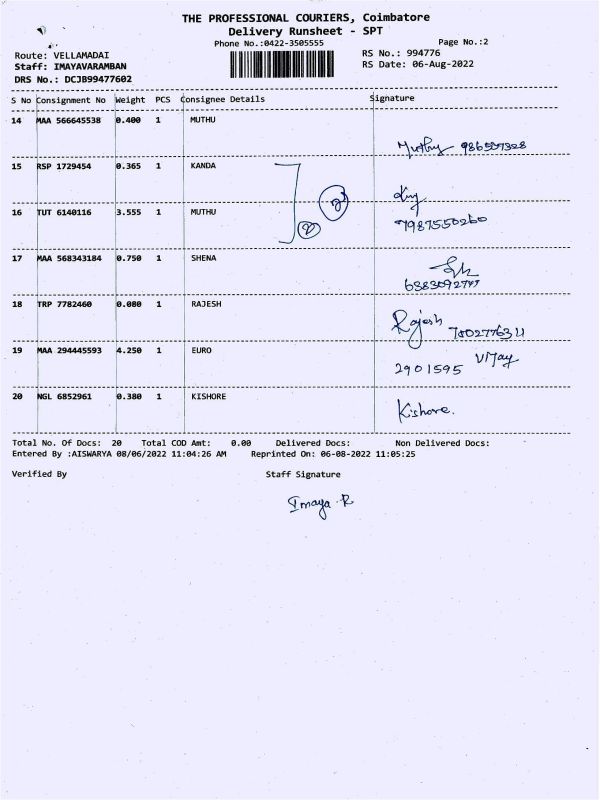 THE PROFESSIONAL COURIERS, Coimbatore
Delivery Runsheet - SPT
Phone No.:0422-3505555
Page No.:2
Route: VELLAMADAI
RS No.: 994776
Staff: IMAYAVARAMBAN
RS Date: 06-Aug-2022
DRS No.: DCJB99477602
S No Consignment No Weight PCS Consignee Details Signature
14 MAA 566645538 0.400 1 MUTHU
15 RSP 1729454 0.365 1 KANDA
16 TUT 6140116 3.555 1 MUTHU
7987550260
17 MAA 568343184 0.750 1 SHENA
18 TRP 7782460 0.080 1 RAJESH
Rajesh
19 MAA 294445593 4.250 1 EURO
2901595 Vijay
20 NGL 6852961 0.380 1 KISHORE
Kishore.
Total No. Of Docs: 20 Total COD Amt: 0.00 Delivered Docs: Non Delivered Docs:
Entered By :AISWARYA 08/06/2022 11:04:26 AM Reprinted On: 06-08-2022 11:05:25
Verified By Staff Signature
Imaya R